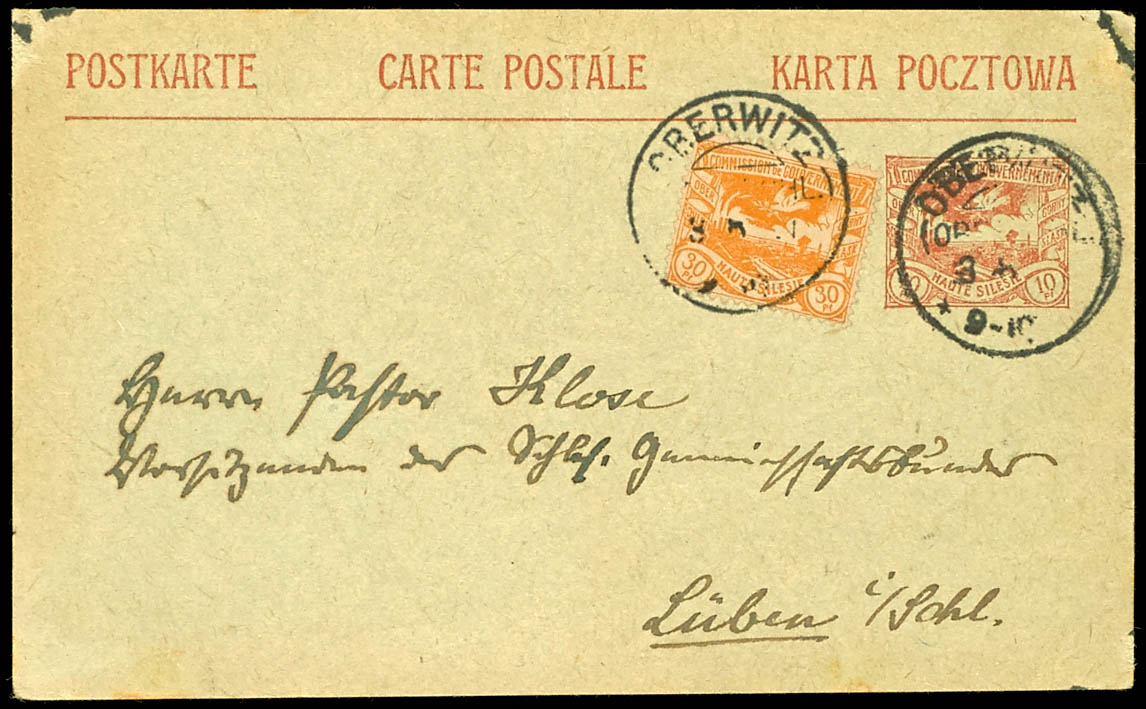 POSTKARTE CARTE POSTALE KARTA POCZTOWA
OBERWITZ
COMMISSION DE GOUVERNEMENT
HAUTE SILESIE
30 Pf 30 Pf
COMMISSION DE GOUVERNEMENT
HAUTE SILESIE
10 Pf
9-10
Herrn Pastor Klose
Vorsitzenden des Schles. Gemeinschaftsbundes
Lüben i/Schl.